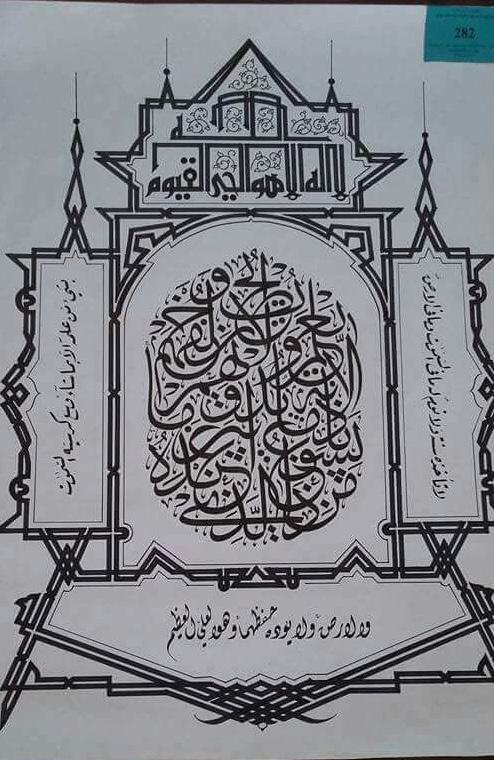 282
الله
لا اله الا هو الحي القيوم
لا تاخذه سنة ولا نوم له ما فى السموت وما فى الارض
من ذا الذي يشفع عنده الا باذنه يعلم ما بين ايديهم وما خلفهم ولا
بشي من علمه الا بما شاء وسع كرسيه السموت
والارض ولا يوده حفظهما وهو العلي العظيم